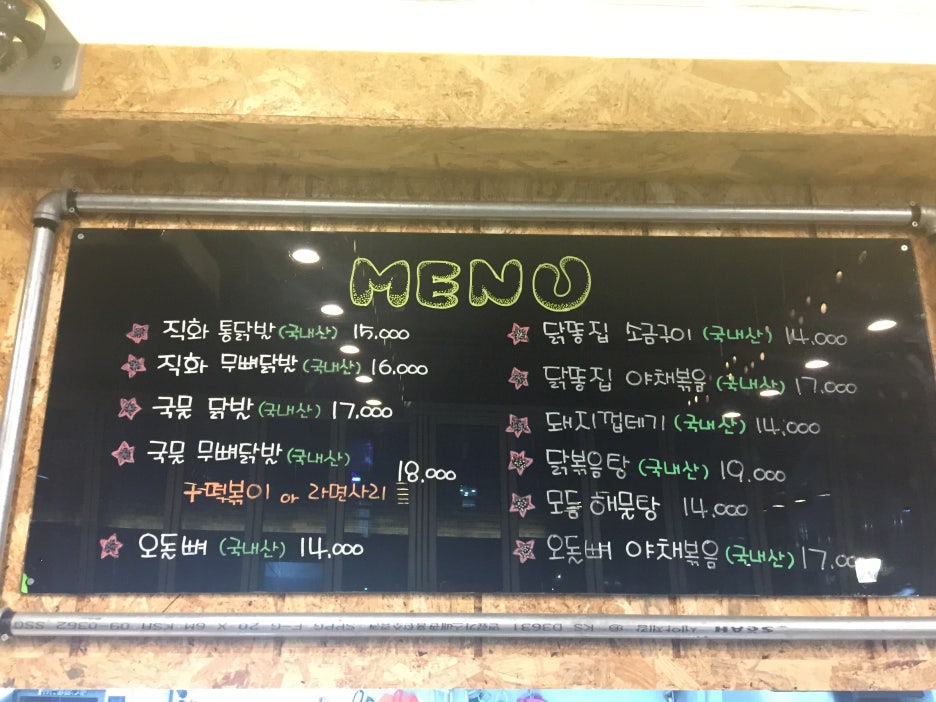 MENU
직화 통닭발 (국내산) 15.000
직화 무뼈닭발 (국내산) 16.000
국물 닭발 (국내산) 17.000
국물 무뼈닭발 (국내산)
18.000
구떡볶이 or 라면사리
오돌뼈 (국내산) 14.000
닭똥집 소금구이 (국내산) 14.000
닭똥집 야채볶음 (국내산) 17.000
돼지껍데기 (국내산) 14.000
닭볶음탕 (국내산) 19.000
모듬 해물탕 14.000
오돌뼈 야채볶음 (국내산) 17.000